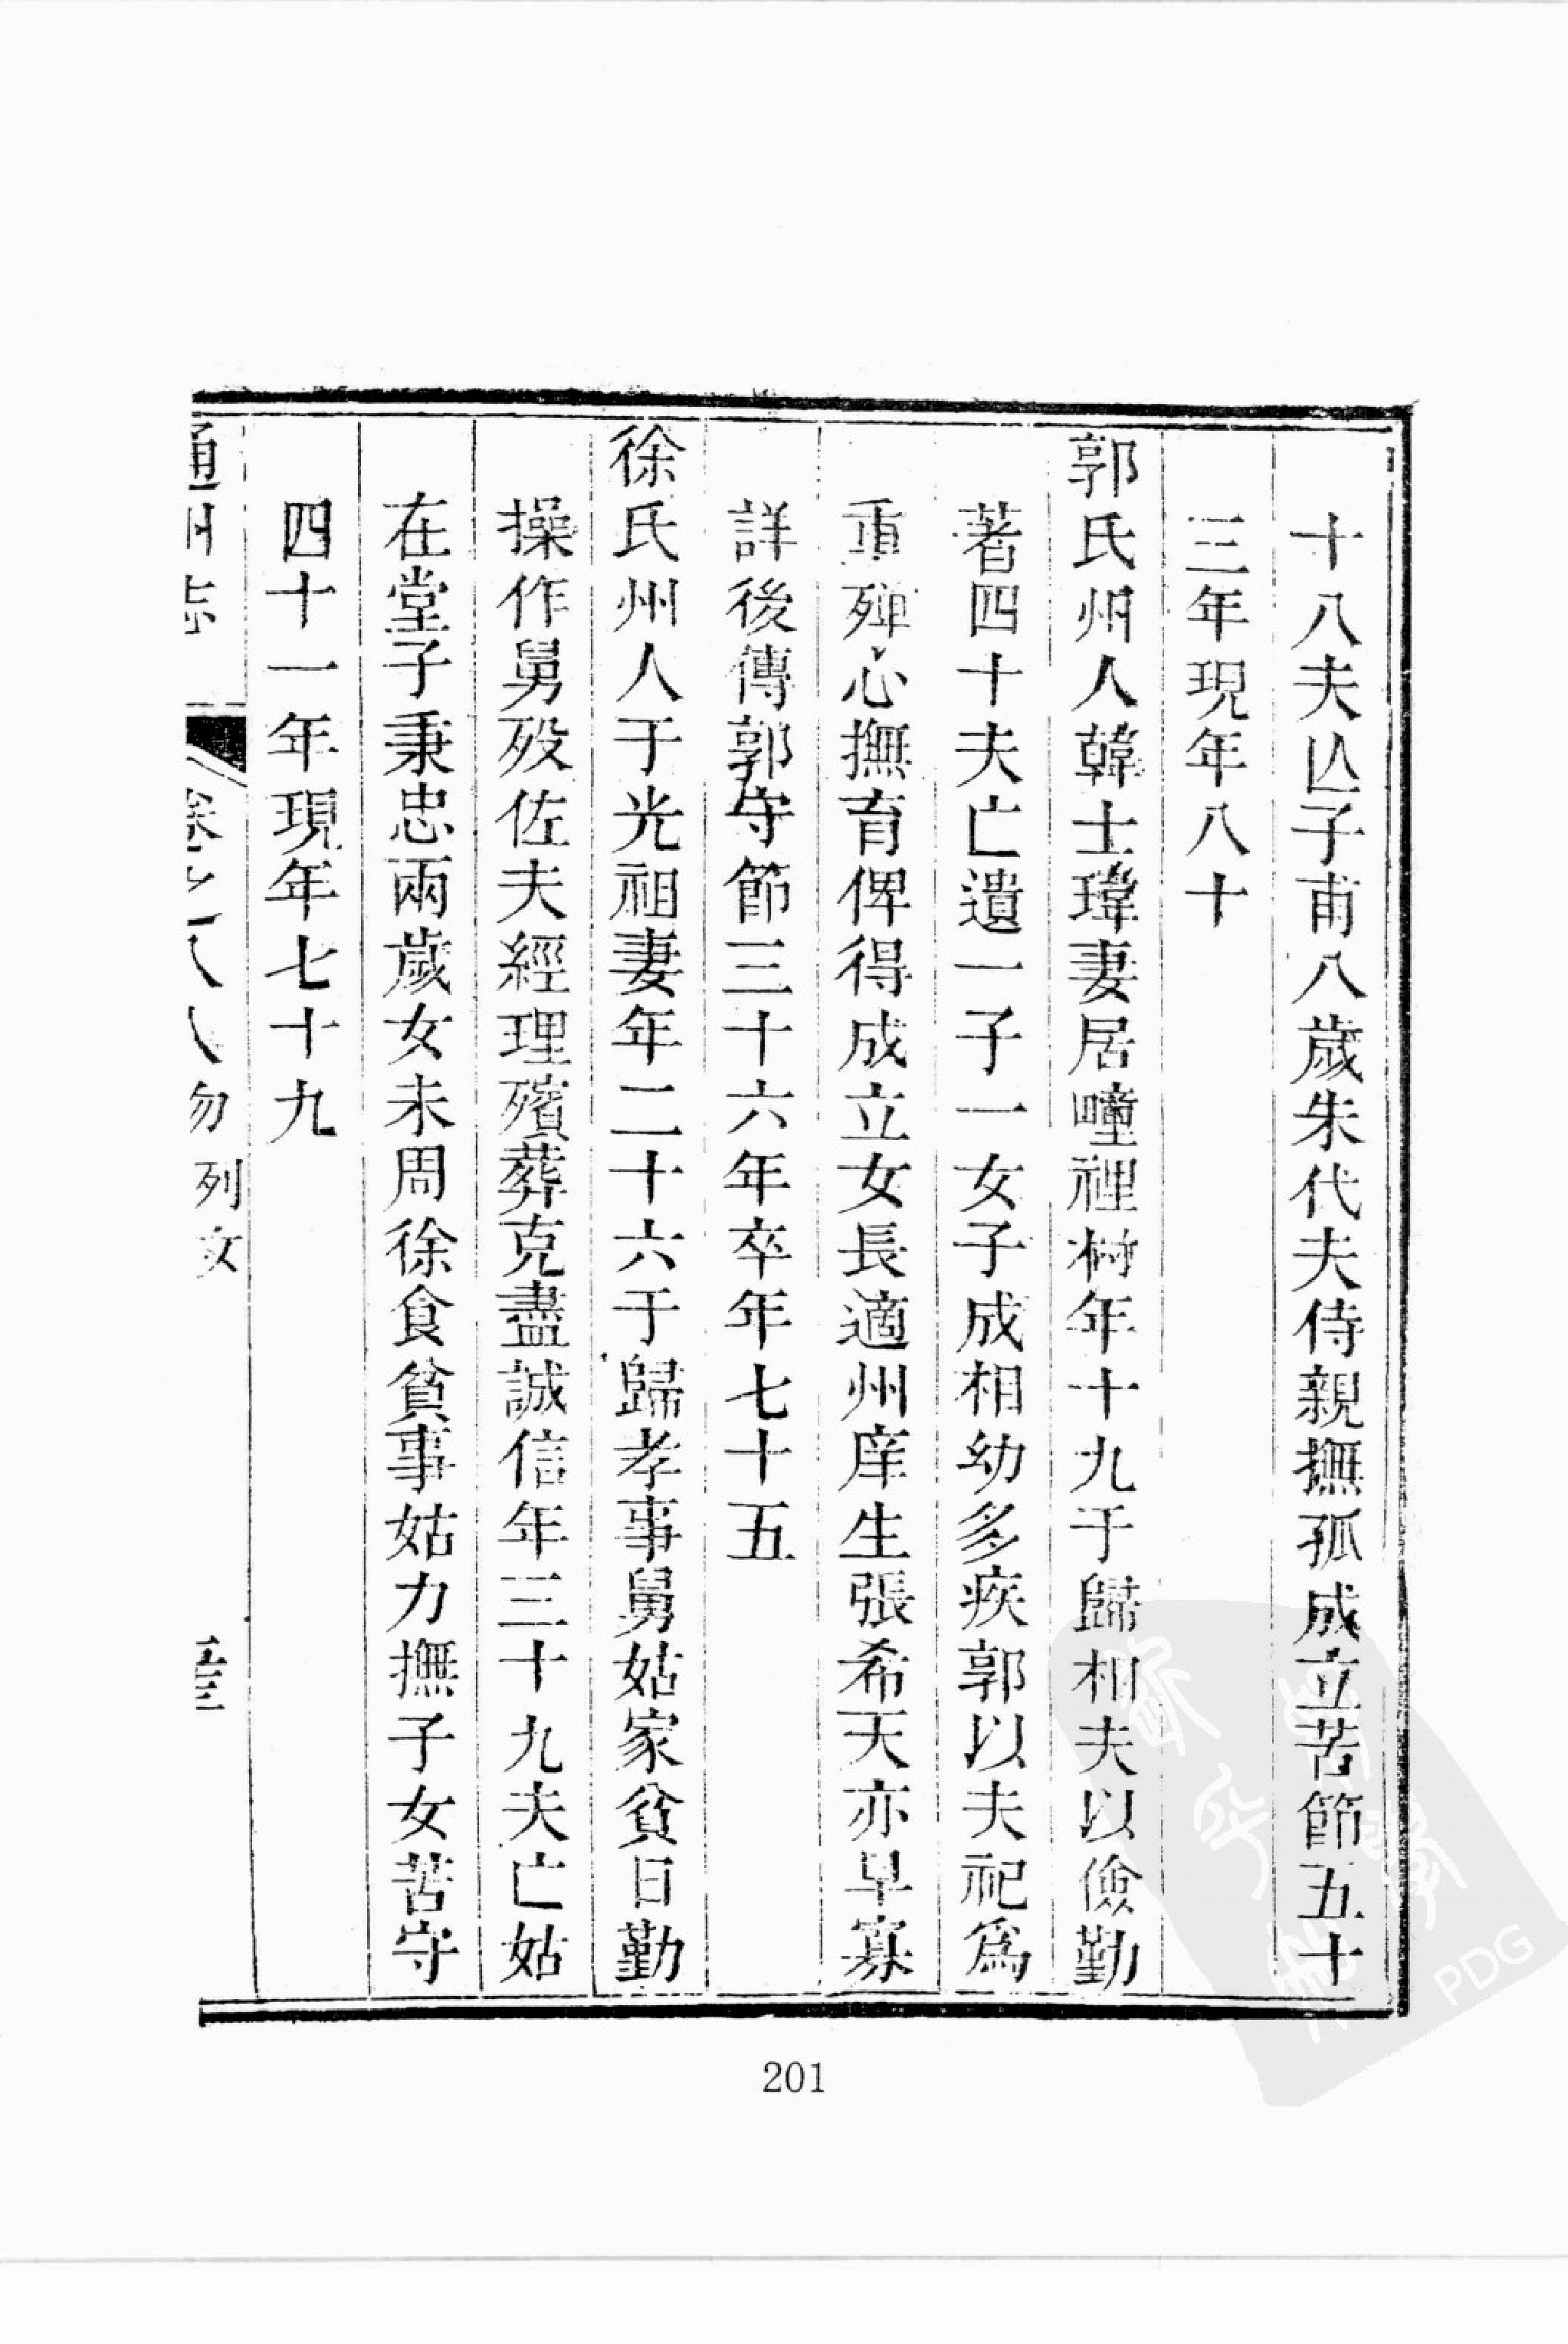 十八夫亾子甫八歲朱代夫侍親撫孤成立苦節五十
三年現年八十
郭氏州人韓士瑋妻居疃裡樹年十九于歸相夫以儉勤
著四十夫亡遺一子一女子成相幼多疾郭以夫祀爲
重殫心撫育俾得成立女長適州庠生張希天亦早寡
詳後傳郭守節三十六年卒年七十五
徐氏州人于光祖妻年二十六于歸孝事舅姑家貧日勤
操作舅殁佐夫經理殯葬克盡誠信年三十九夫亡姑
在堂子秉忠兩歲女未周徐食貧事姑力撫子女苦守
四十一年現年七十九
通州志 卷之八人物 列女
201
PDG